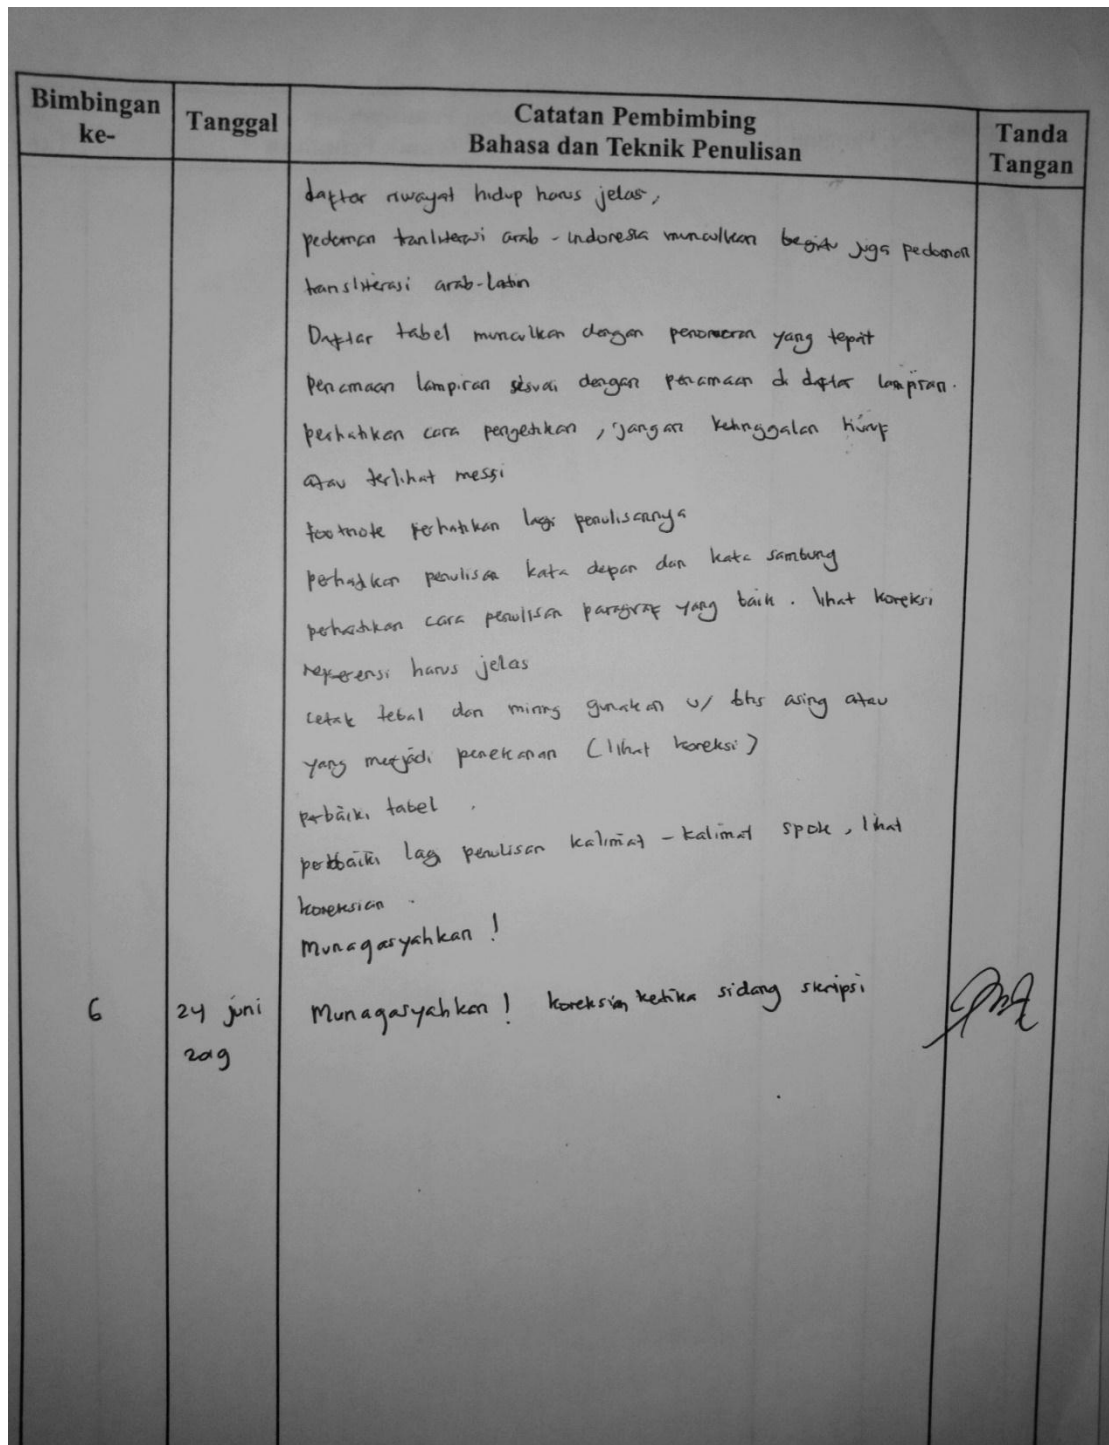 Bimbingan ke-
Tanggal
Catatan Pembimbing
Bahasa dan Teknik Penulisan
Tanda Tangan
daftar riwayat hidup harus jelas,
pedoman tranliterasi arab - indonesia munculkan begitu juga pedoman
transliterasi arab-latin
Daftar tabel munculkan dengan penomoran yang tepat
Penamaan lampiran sesuai dengan penamaan di daftar lampiran.
perhatikan cara pengetikan, jangan ketinggalan huruf
atau terlihat messi
footnote perhatikan lagi penulisannya
perhatikan penulisan kata depan dan kata sambung
perhatikan cara penulisan paragraf yang baik. lihat koreksi
referensi harus jelas
cetak tebal dan miring gunakan u/ bhs asing atau
yang menjadi penekanan (lihat koreksi)
perbaiki tabel.
perbaiki lagi penulisan kalimat - kalimat spok, lihat
koreksian.
Munaqasyahkan!
6
24 juni
2019
Munaqasyahkan! koreksian ketika sidang skripsi